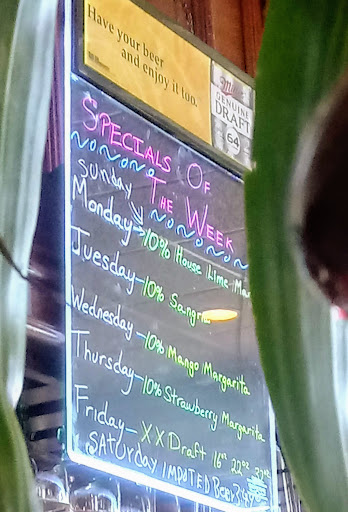 Have your beer
and enjoy it too.
GENUINE
DRAFT
64
SPECIALS OF
THE WEEK
SUNDAY
Monday 10% House Lime
Tuesday - 10%
Wednesday - 10% Mango Margarita
Thursday - 10% Strawberry Margarita
Friday - XX Draft 16oz 22oz
SATURDAY IMPORTED Beer